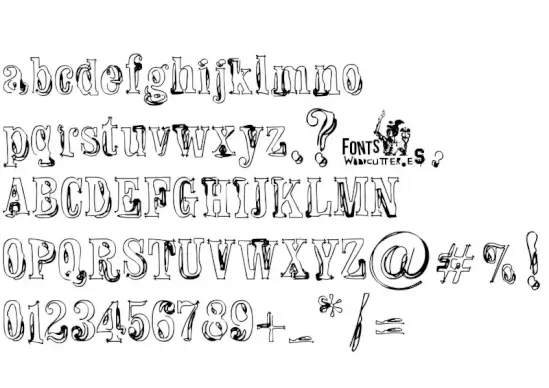 abcdefghijklmno
pqrstuvwxyz.? FONTS WOODCUTTER.ES ?
ABCDEFGHIJKLMN
OPQRSTUVWXYZ@#%!
0123456789+_*/=